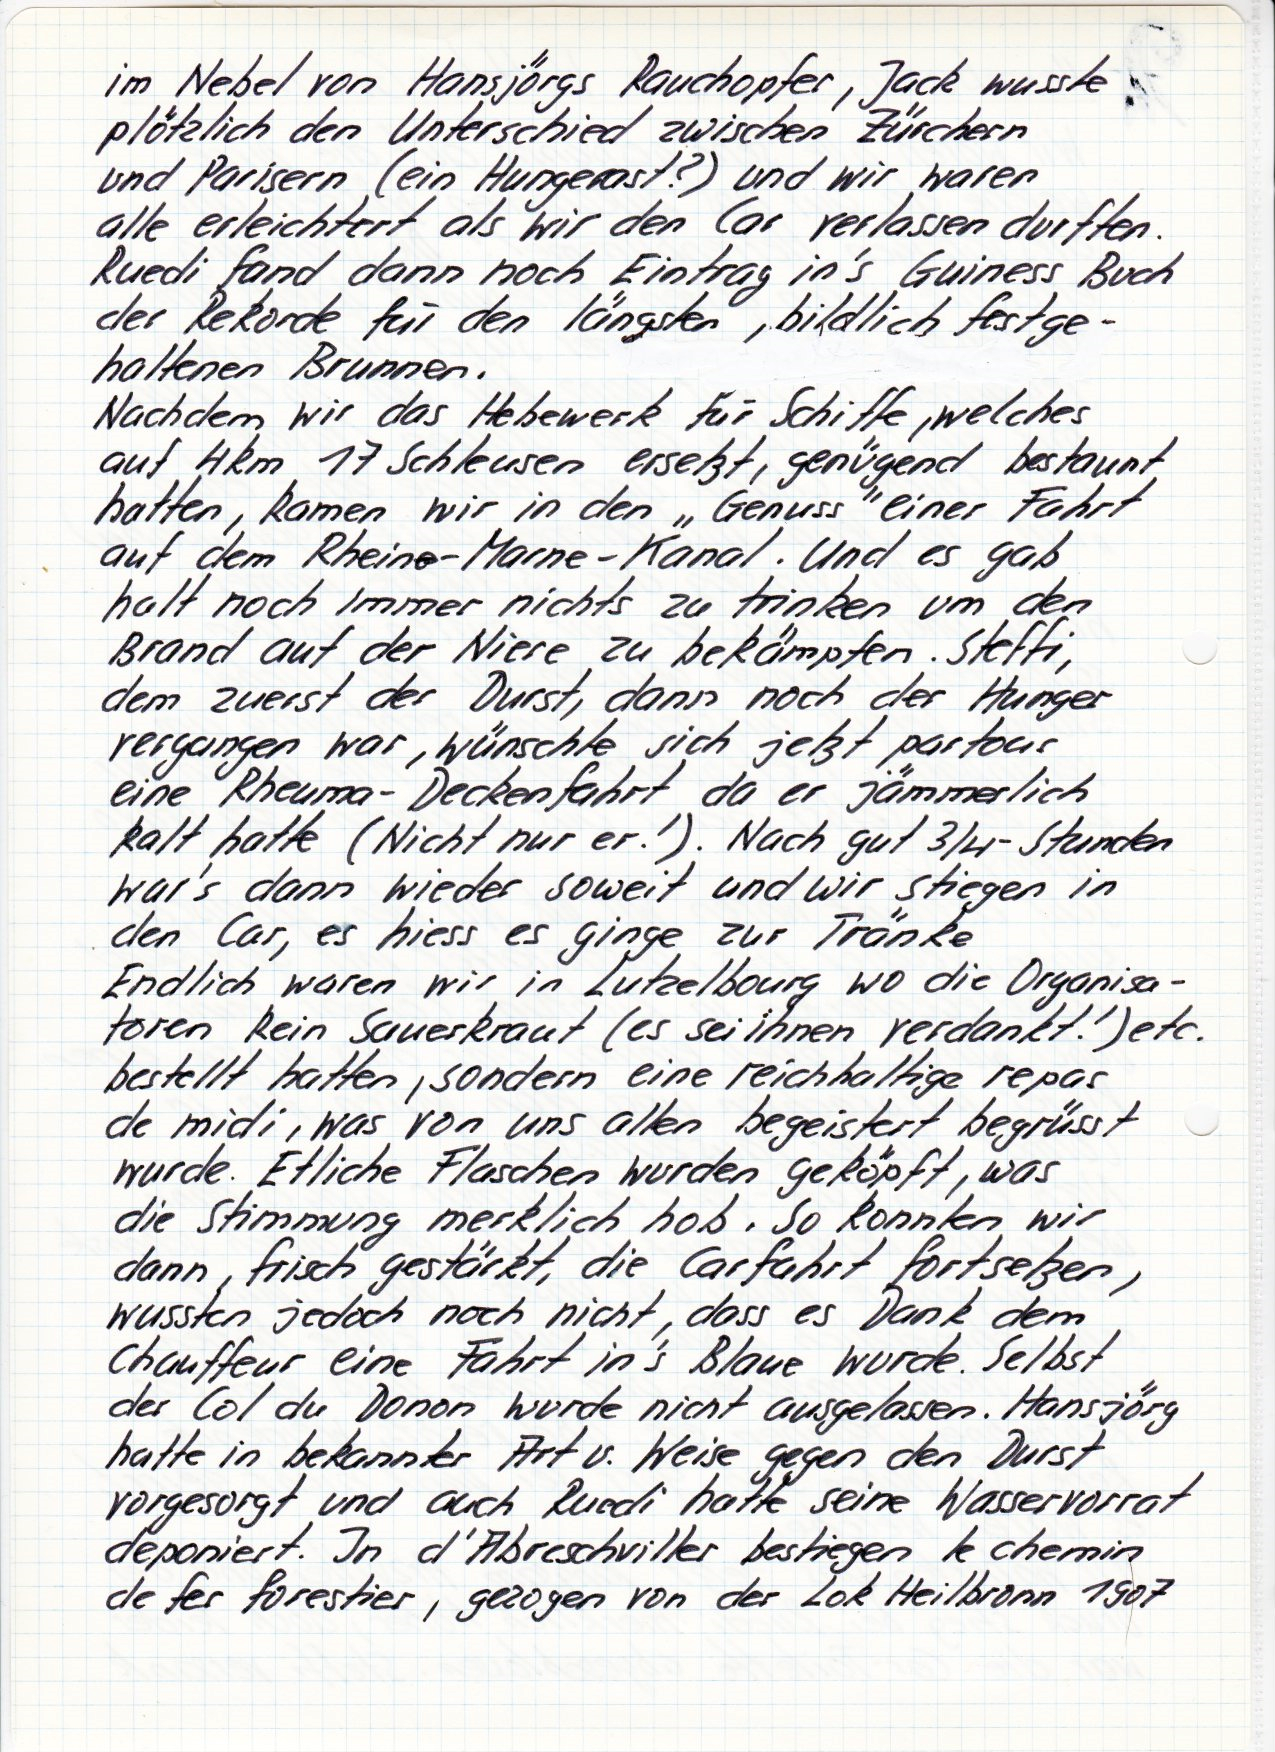 im Nebel von Hansjörgs Rauchopfer, Jack wusste
plötzlich den Unterschied zwischen Zürchern
und Parisern (ein Hungerast?) und wir waren
alle erleichtert als wir den Car verlassen durften.
Ruedi fand dann noch Eintrag in's Guiness Buch
der Rekorde für den längsten, bildlich festge-
haltenen Brunnen.
Nachdem wir das Hebewerk für Schiffe, welches
auf 4km 17 Schleusen ersetzt, genügend bestaunt
hatten, kamen wir in den „Genuss" einer Fahrt
auf dem Rhein-Marne-Kanal. Und es gab
halt noch immer nichts zu trinken um den
Brand auf der Niere zu bekämpfen. Steffi,
dem zuerst der Durst, dann noch der Hunger
vergangen war, wünschte sich jetzt partour
eine Rheuma-Deckenfahrt da er jämmerlich
kalt hatte (Nicht nur er!). Nach gut 3/4-Stunden
war's dann wieder soweit und wir stiegen in
den Car, es hiess es ginge zur Tränke
Endlich waren wir in Lutzelbourg wo die Organisa-
toren kein Sauerkraut (es sei ihnen verdankt!) etc.
bestellt hatten, sondern eine reichhaltige repas
de midi, was von uns allen begeistert begrüsst
wurde. Etliche Flaschen wurden geköpft, was
die Stimmung merklich hob. So konnten wir
dann, frisch gestärkt, die Carfahrt fortsetzen,
wussten jedoch noch nicht, dass es Dank dem
Chauffeur eine Fahrt in's Blaue wurde. Selbst
der Col du Donon wurde nicht ausgelassen. Hansjörg
hatte in bekannter Art u. Weise gegen den Durst
vorgesorgt und auch Ruedi hatte seine Wasservorrat
deponiert. In d'Abreschviller bestiegen le chemin
de fer forestier, gezogen von der Lok Heilbronn 1907